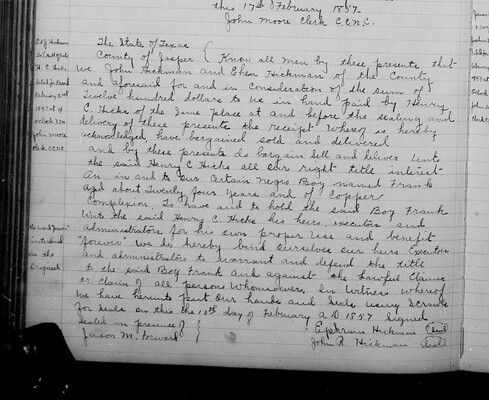 this 17th February 1857.
John Moore Clerk C.C.N.C.
The State of Texas
County of Jasper { Know all men by these presents that
We John Hickman and Ephen Hickman of the County
and aforesaid for and in consideration of the sum of
Twelve hundred dollars to us in hand paid by Henry
C. Hicks of the same place at and before the sealing and
delivery of these presents the receipt whereof is hereby
acknowledged, have bargained sold and delivered
and by these presents do bargain sell and deliver unto
the said Henry C Hicks all our right title interest
in and to our certain negro Boy named Frank
aged about Twenty four years and of Copper
Complexion. To have and to hold the said Boy Frank
Unto the said Henry C. Hicks her heirs, executors and
administrators for his own proper use and benefit
forever. We do hereby bind ourselves our heirs Executors
and administrators to warrant and defend the title
to the said Boy Frank and against the Lawful Claims
or claim of all persons Whomsoever, In Witness whereof
We have hereunto put our hands and seals using scrawls
for seals on this the 10th day of February A.D 1857 Signed
Sealed in presence of } Ephriam Hickman (Seal)
Jason M. Forward } John R Hickman (Seal)
H. C. Hicks
Filed for Record
John Moore
Original